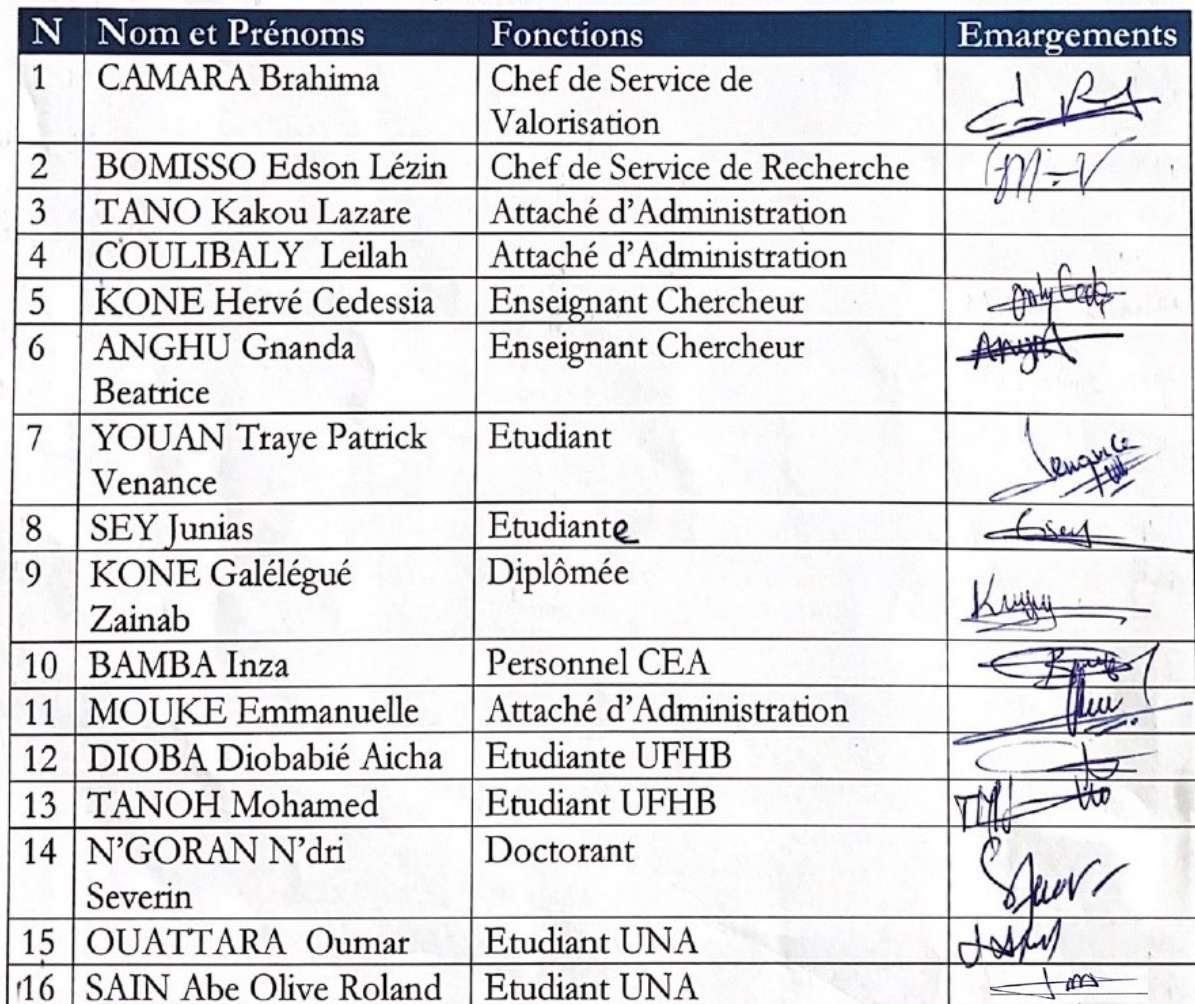 N Nom et Prénoms Fonctions Emargements
1 CAMARA Brahima Chef de Service de
Valorisation
2 BOMISSO Edson Lézin Chef de Service de Recherche
3 TANO Kakou Lazare Attaché d'Administration
4 COULIBALY Leilah Attaché d'Administration
5 KONE Hervé Cedessia Enseignant Chercheur
6 ANGHU Gnanda Enseignant Chercheur
Beatrice
7 YOUAN Traye Patrick Etudiant
Venance
8 SEY Junias Etudiante
9 KONE Galélégué Diplômée
Zainab
10 BAMBA Inza Personnel CEA
11 MOUKE Emmanuelle Attaché d'Administration
12 DIOBA Diobabié Aicha Etudiante UFHB
13 TANOH Mohamed Etudiant UFHB
14 N'GORAN N'dri Doctorant
Severin
15 OUATTARA Oumar Etudiant UNA
16 SAIN Abe Olive Roland Etudiant UNA